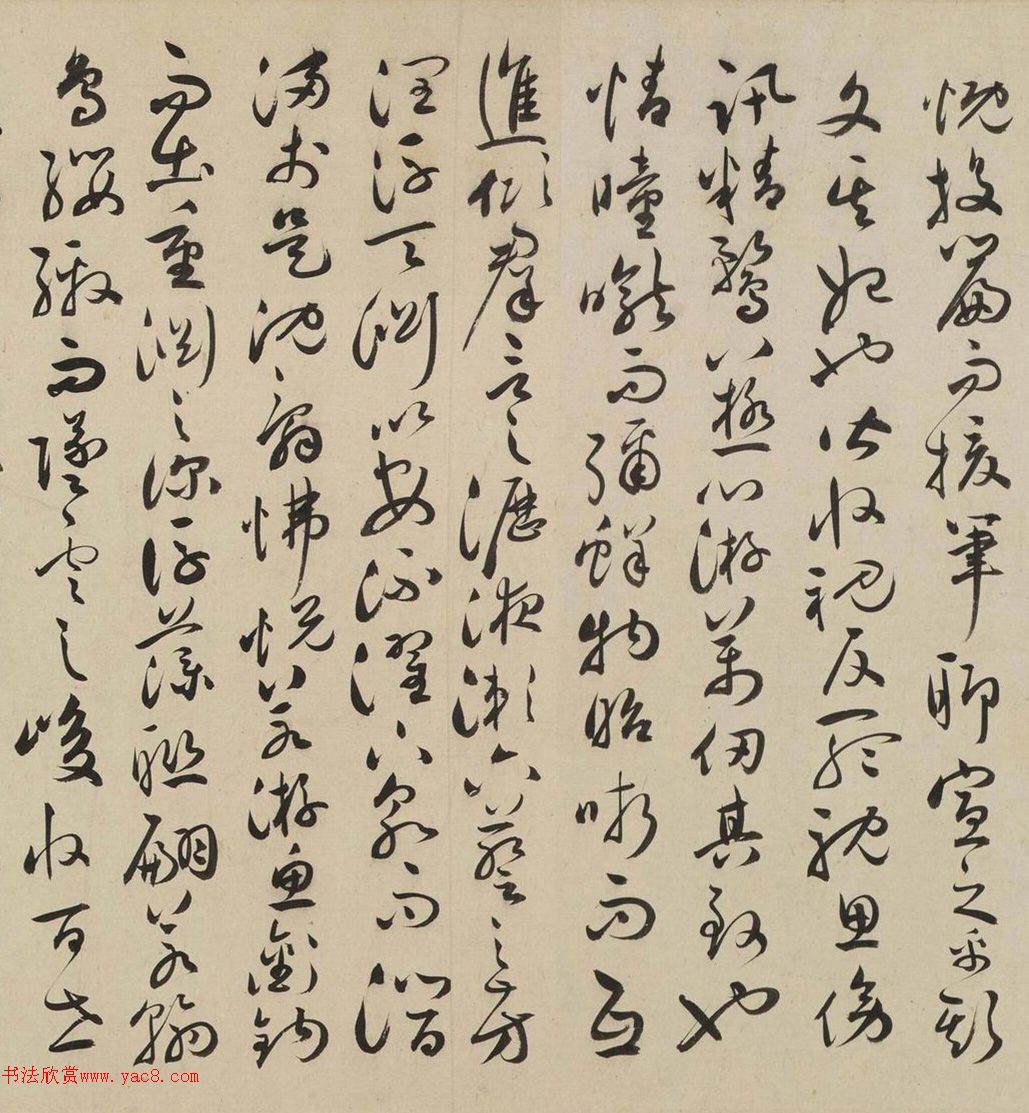 慨投篇而援筆聊宣之乎斯
文其始也皆收視反聽耽思傍
訊精騖八極心游萬仞其致也
情曈曨而彌鮮物昭晰而互
進傾群言之瀝液漱六藝之芳
潤浮天淵以安流濯下泉而潛
浸於是沈辭怫悅若游魚銜鉤
而出重淵之深浮藻聯翩若翰
鳥纓繳而墜雲之峻收百世
书法欣赏www.yac8.com